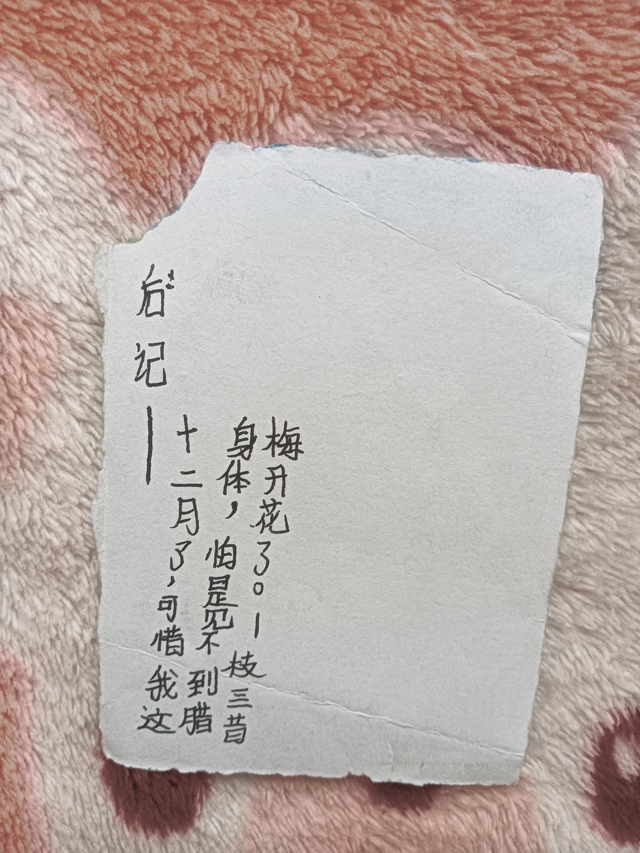 后记——
十二月了，可惜我这
身体，怕是见不到腊
梅开花了。—枝三昔